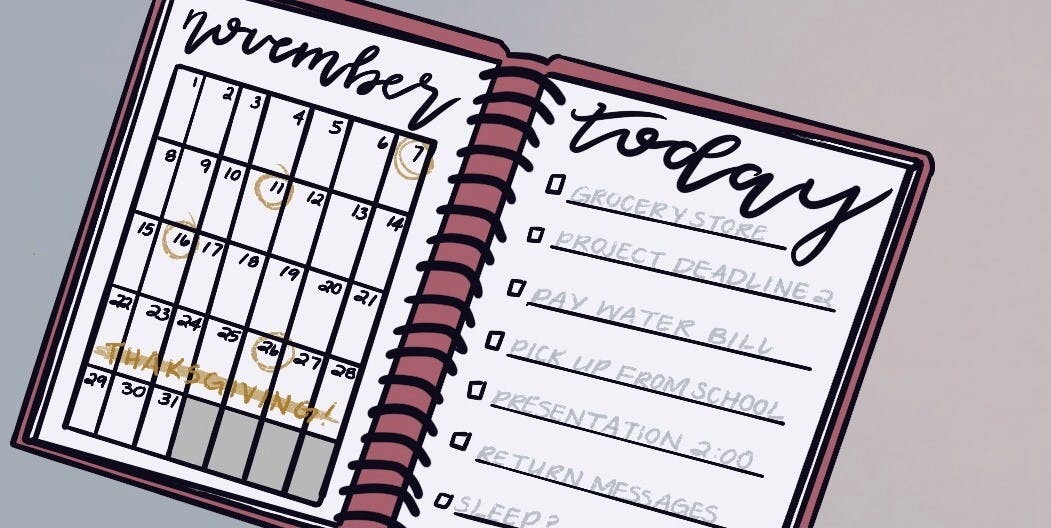 november
1 2 3 4 5 6 7
8 9 10 11 12 13 14
15 16 17 18 19 20 21
22 23 24 25 26 27 28
THAKSGIVING!
29 30 31
today
GROCERY STORE
PROJECT DEADLINE 2
PAY WATER BILL
PICK UP FROM SCHOOL
PRESENTATION 2:00
RETURN MESSAGES
SLEEP?